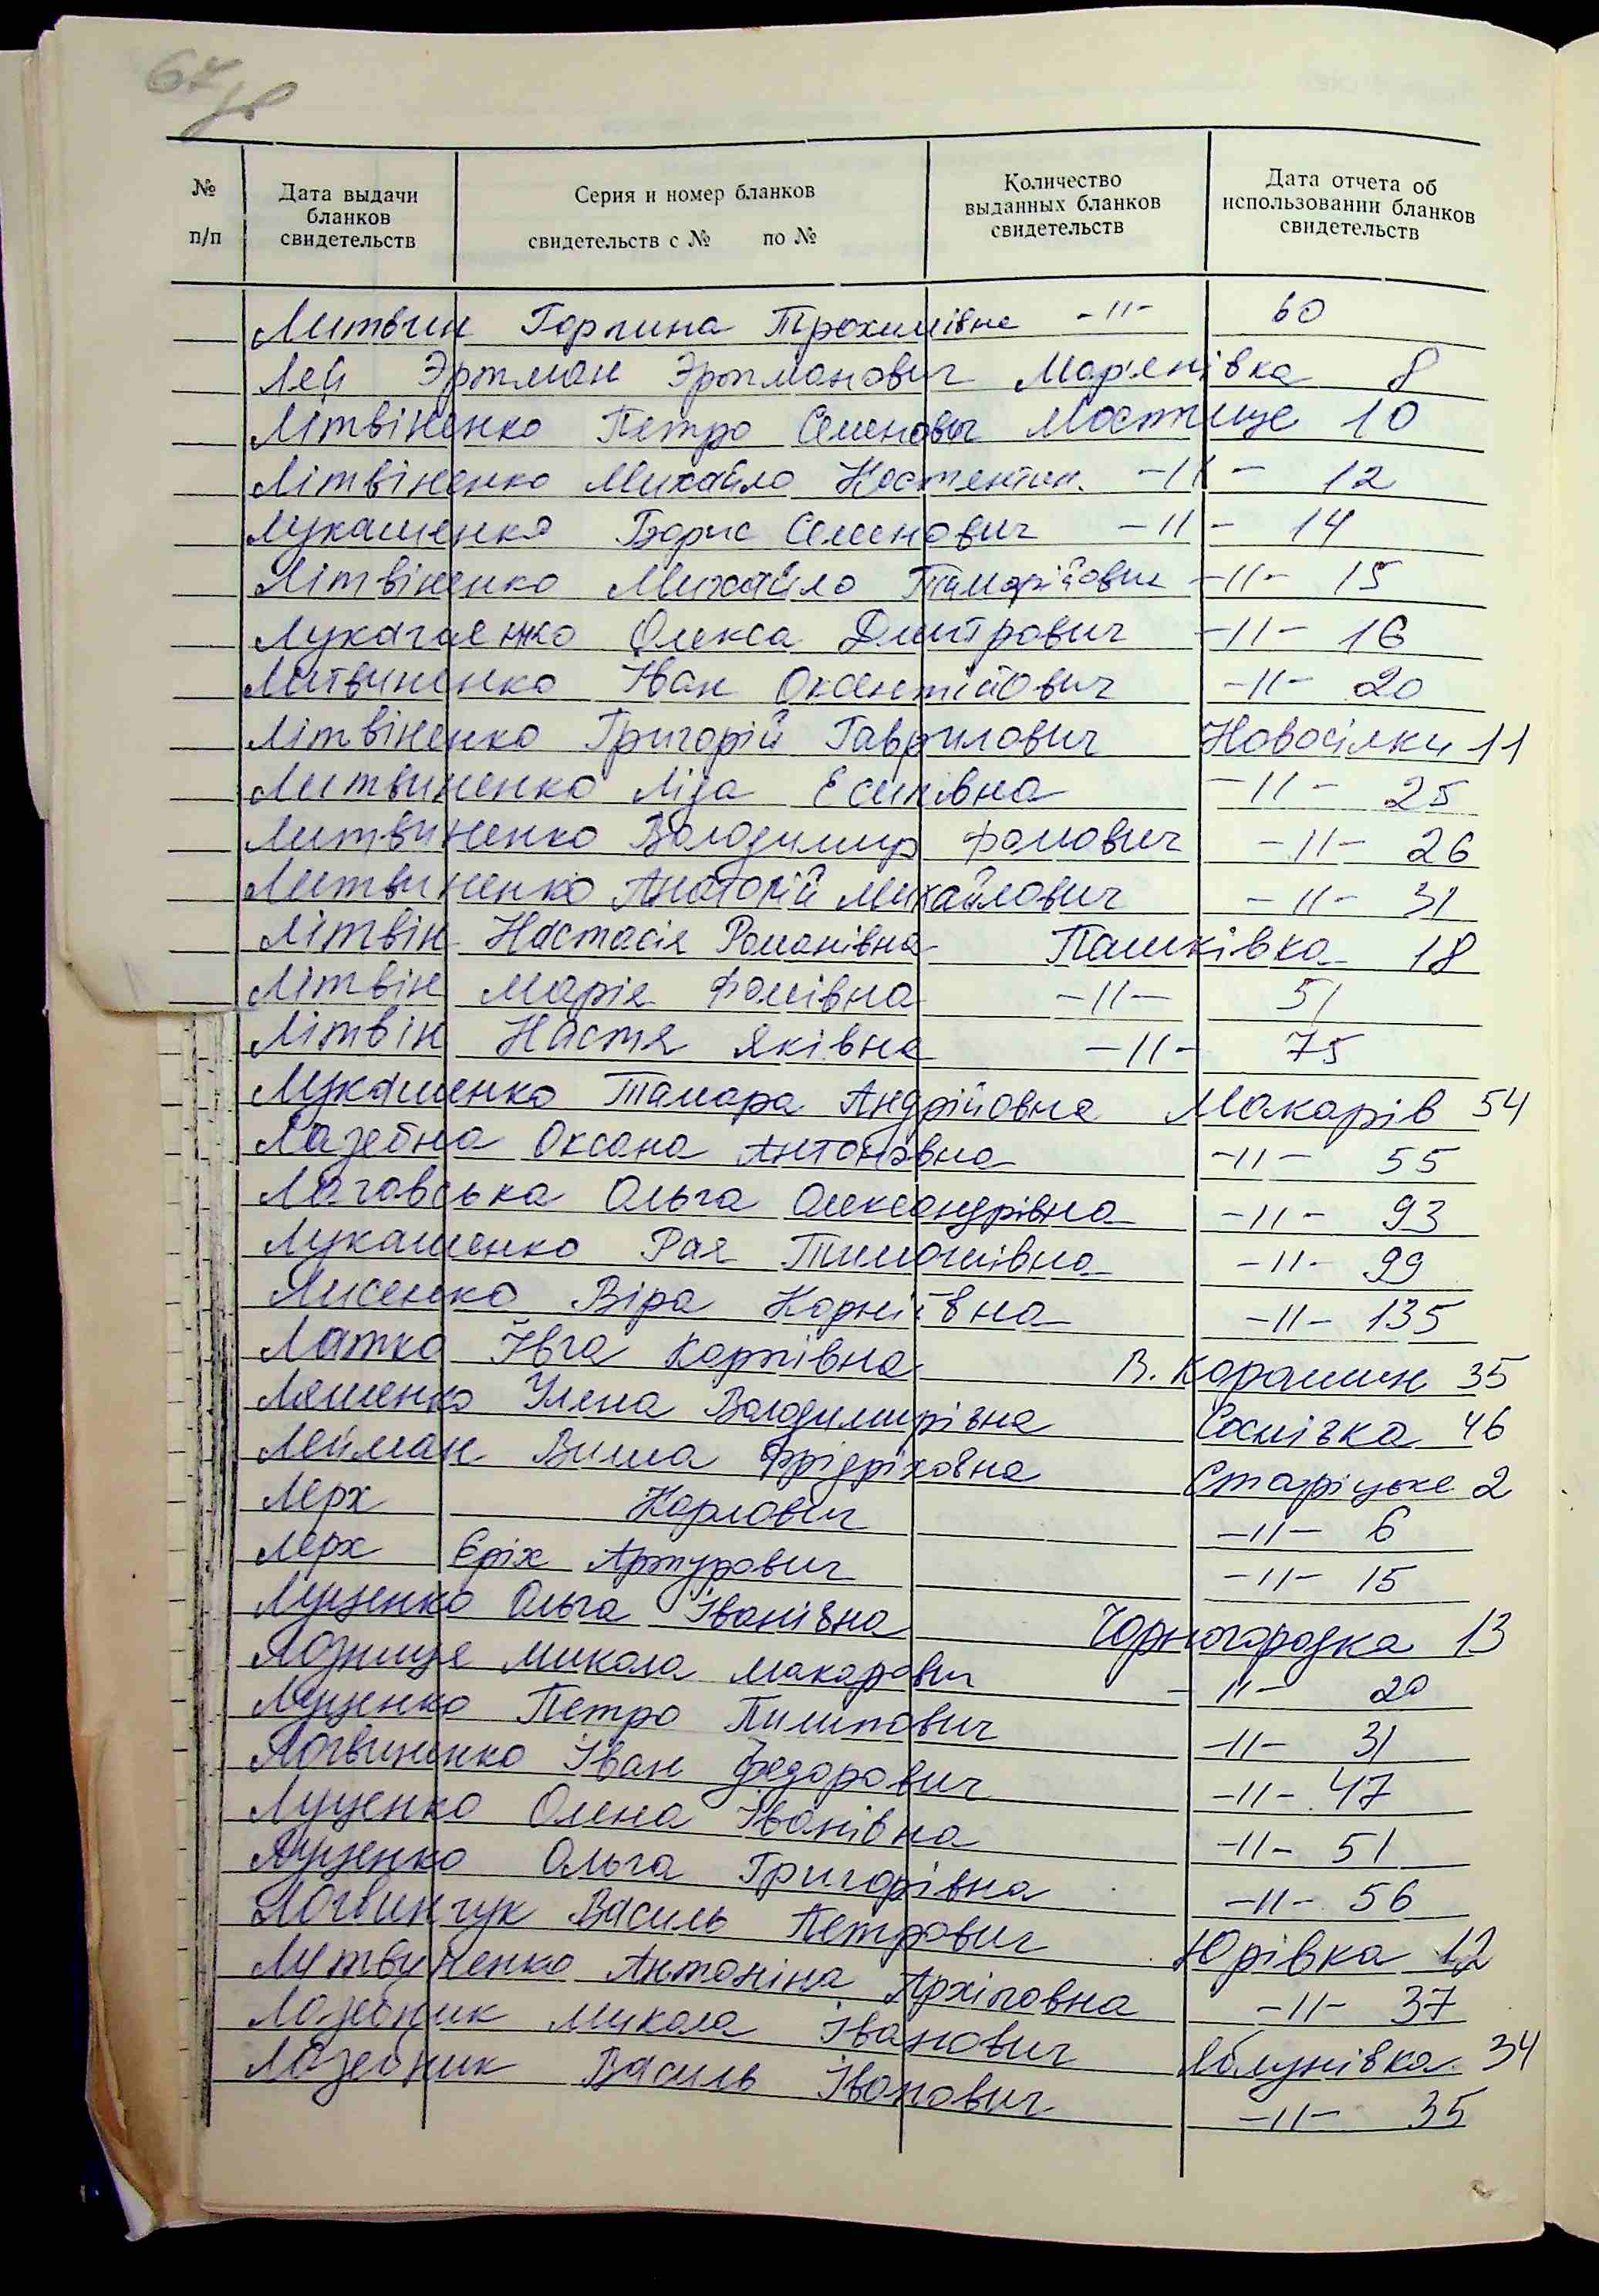 67 зв
№ п/п
Дата выдачи бланков свидетельств
Серия и номер бланков свидетельств с № по №
Количество выданных бланков свидетельств
Дата отчета об использовании бланков свидетельств
Литвин Горпина Трохимівна -11- 60
Лей Эртман Эртманович Мар'янівка 8
Літвіненко Петро Семенович Мостище 10
Літвіненко Михайло Костянтин. -11- 12
Лукашенко Борис Семенович -11- 14
Літвіненко Михайло -11- 15
Олекса Дмитрович -11- 16
Литвиненко Іван Оксентійович -11- 20
Літвіненко Григорій Гаврилович Новосілки 11
Литвиненко Ліза Есипівна -11- 25
Литвиненко Володимир Фомович -11- 26
Литвиненко Анатолій Михайлович -11- 31
Літвін Настасія Романівна Пашківка 18
Літвін Марія Фомівна -11- 51
Літвін Настя Яківна -11- 75
Лукашенко Тамара Андрійовна Макарів 54
Лазебна Оксана Антонівна -11- 55
Лаговська Ольга Олександрівна -11- 93
Лукашенко Рая Тимошівна -11- 99
Лисенко Віра Корніївна -11- 135
Латко Ївга Карпівна В. Карашин 35
Ляшенко Уляна Володимирівна Соснівка 46
Лейман Вилма Фрідріховна Старіцьке 2
Лерх Карлович -11- 6
Лерх Еріх Артурович -11- 15
Луценко Ольга Іванівна Чорногородка 13
Лозниця Микола Макарович -11- 20
Луценко Петро Пилипович -11- 31
Логвиненко Іван Федорович -11- 47
Луценко Олена Іванівна -11- 51
Луценко Ольга Григорівна -11- 56
Логвинчук Василь Петрович Юрівка 12
Литвиненко Антоніна Архіповна -11- 37
Лазебник Микола Іванович Яблунівка 34
Лазебник Василь Іванович -11- 35